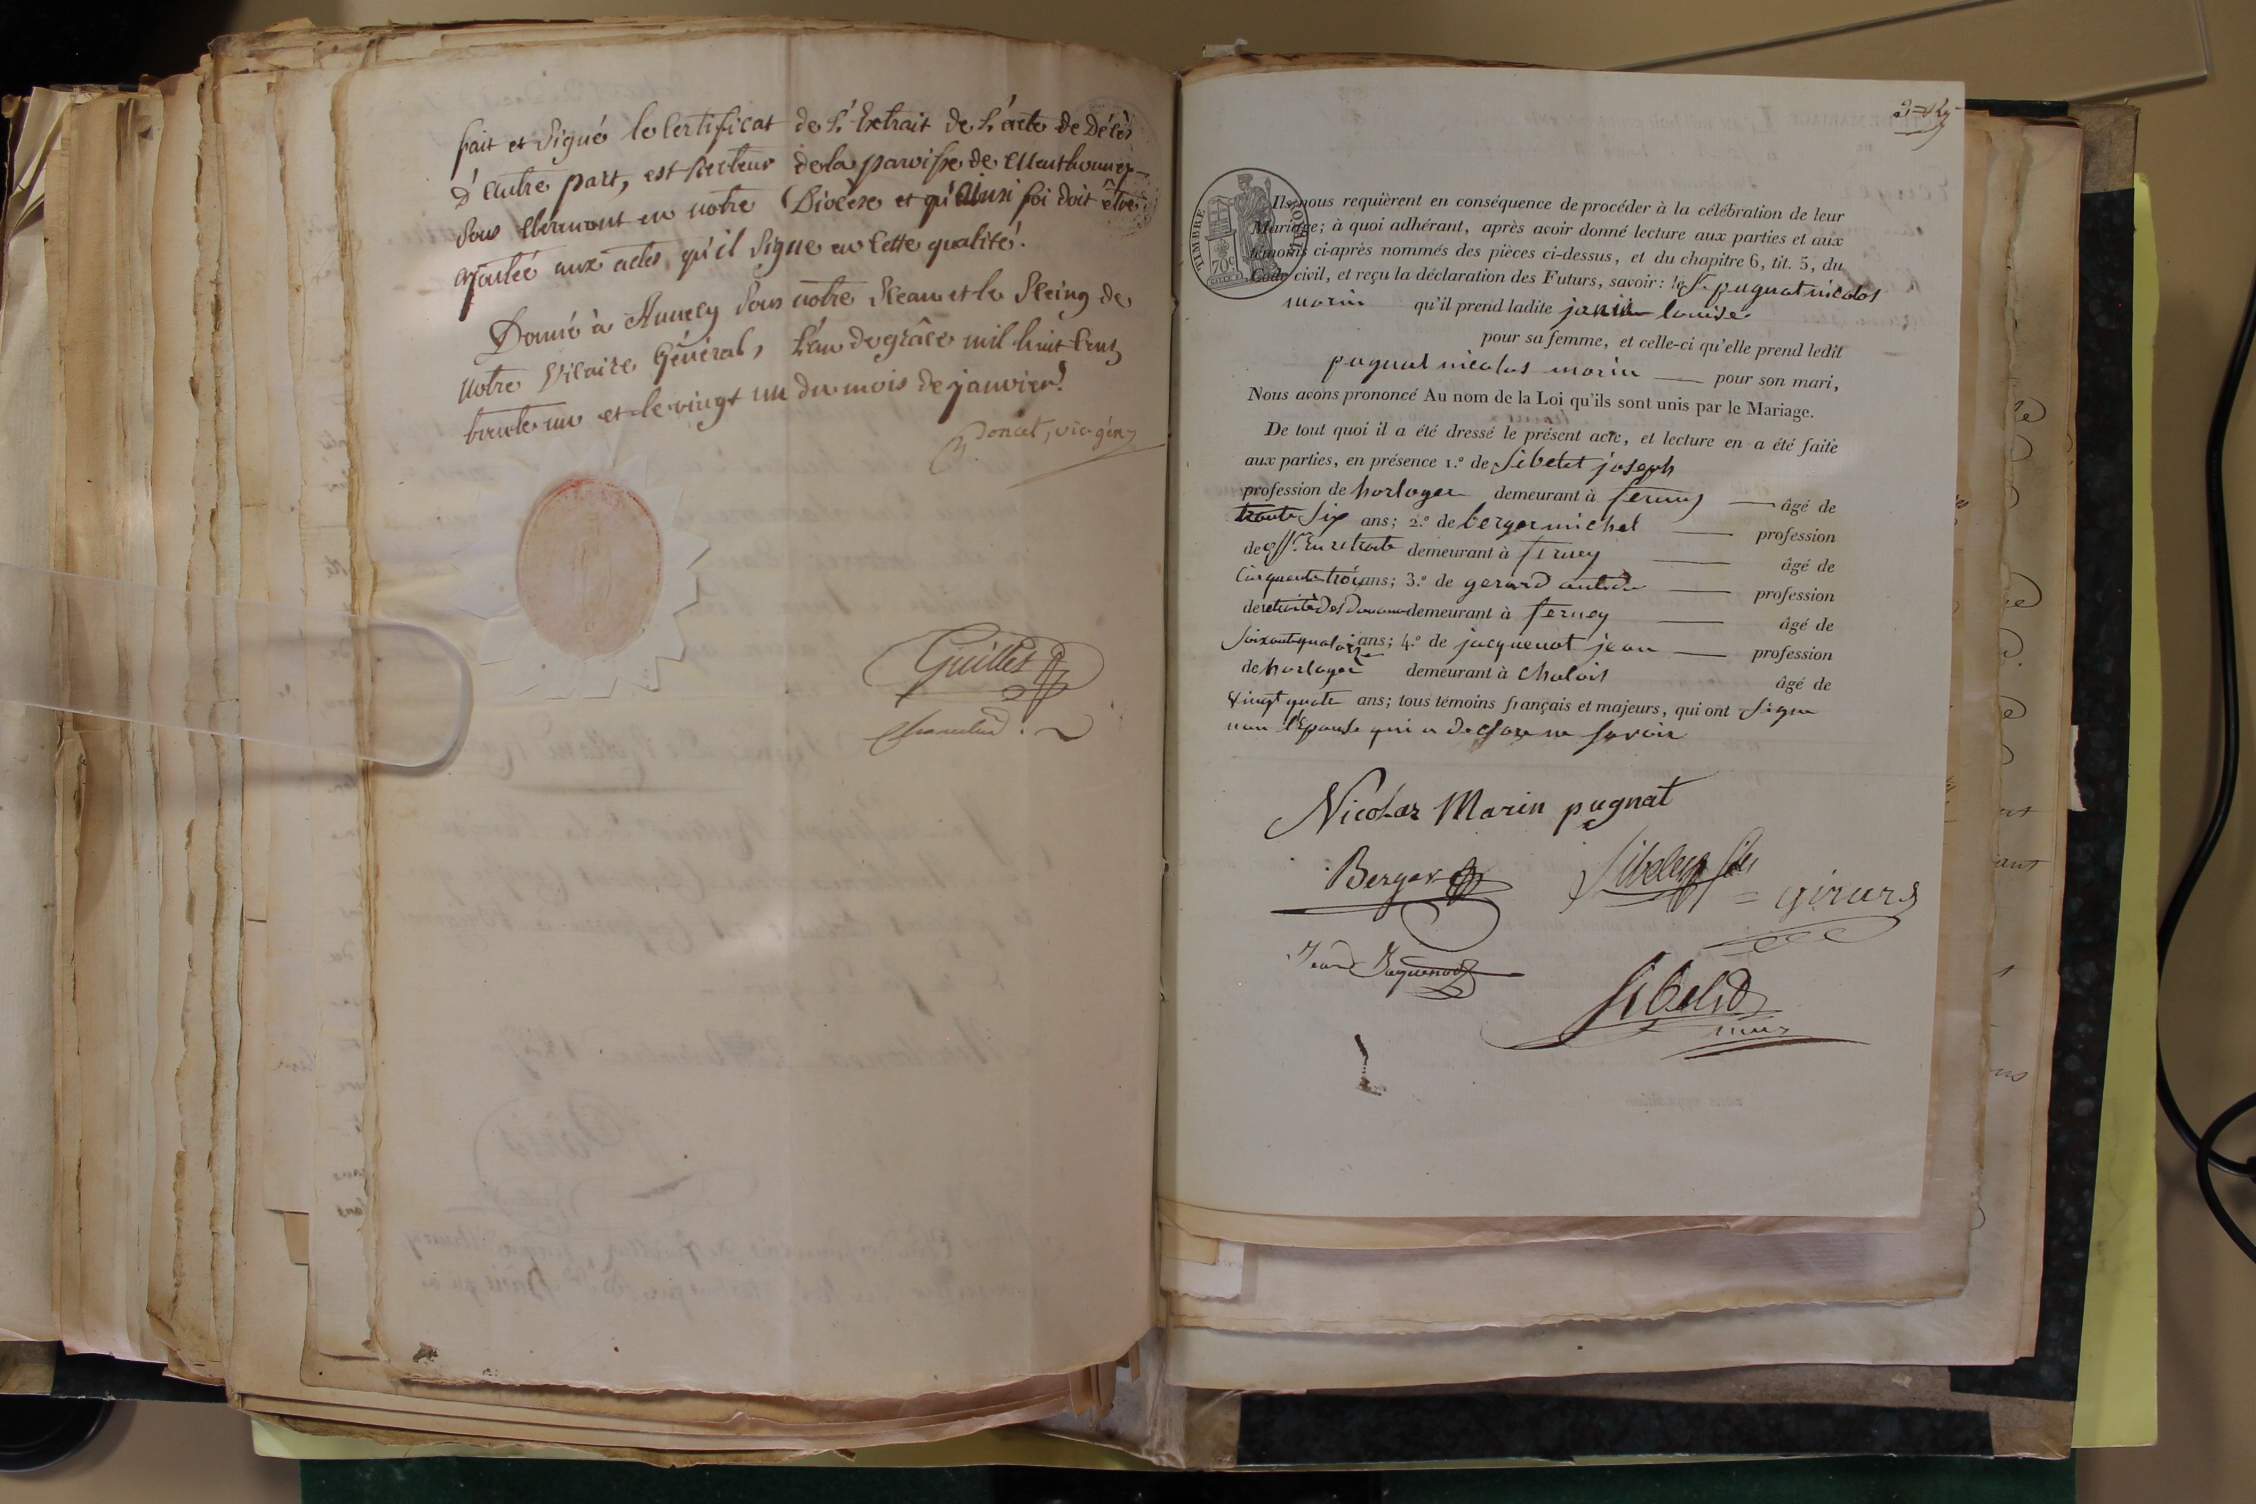 fait et signé le Certificat de l'Extrait de l'acte de Décès
D'autre part, est Recteur de la paroisse de Menthonnex
sous Clermont en notre Diocèse et qu'ainsi foi doit être
ajoutée aux actes qu'il signe en Cette qualité.
Donné à Annecy sous notre Sceau et le Seing de
notre Vicaire Général, l'an de grâce mil huit Cent
trente un et le vingt un du mois de janvier.
Poncet, vic. gén.
Guillet
TIMBRE ROYAL
70c
Ils nous requièrent en conséquence de procéder à la célébration de leur
Mariage; à quoi adhérant, après avoir donné lecture aux parties et aux
témoins ci-après nommés des pièces ci-dessus, et du chapitre 6, tit. 5, du
Code civil, et reçu la déclaration des Futurs, savoir: le Sr pugnat nicolas
marin qu'il prend ladite janin louise
pour sa femme, et celle-ci qu'elle prend ledit
pugnat nicolas marin — pour son mari,
Nous avons prononcé Au nom de la Loi qu'ils sont unis par le Mariage.
De tout quoi il a été dressé le présent acte, et lecture en a été faite
aux parties, en présence 1.º de Sibelet joseph
profession de horloger demeurant à ferney — âgé de
trente Six ans; 2.º de berger michel — profession
de offr. En retraite demeurant à ferney — âgé de
Cinquante trois ans; 3.º de gerard — profession
de retraité des Douanes demeurant à ferney — âgé de
Soixante quatorze ans; 4.º de jacquenot jean — profession
de horloger demeurant à
âgé de
vingt quatre ans; tous témoins français et majeurs, qui ont Signé
non l'Epouse qui a Declaré ne Savoir
Nicolas Marin pugnat
Berger
Sibelet fils
= girard
Jean Jaquenod
Sibelet